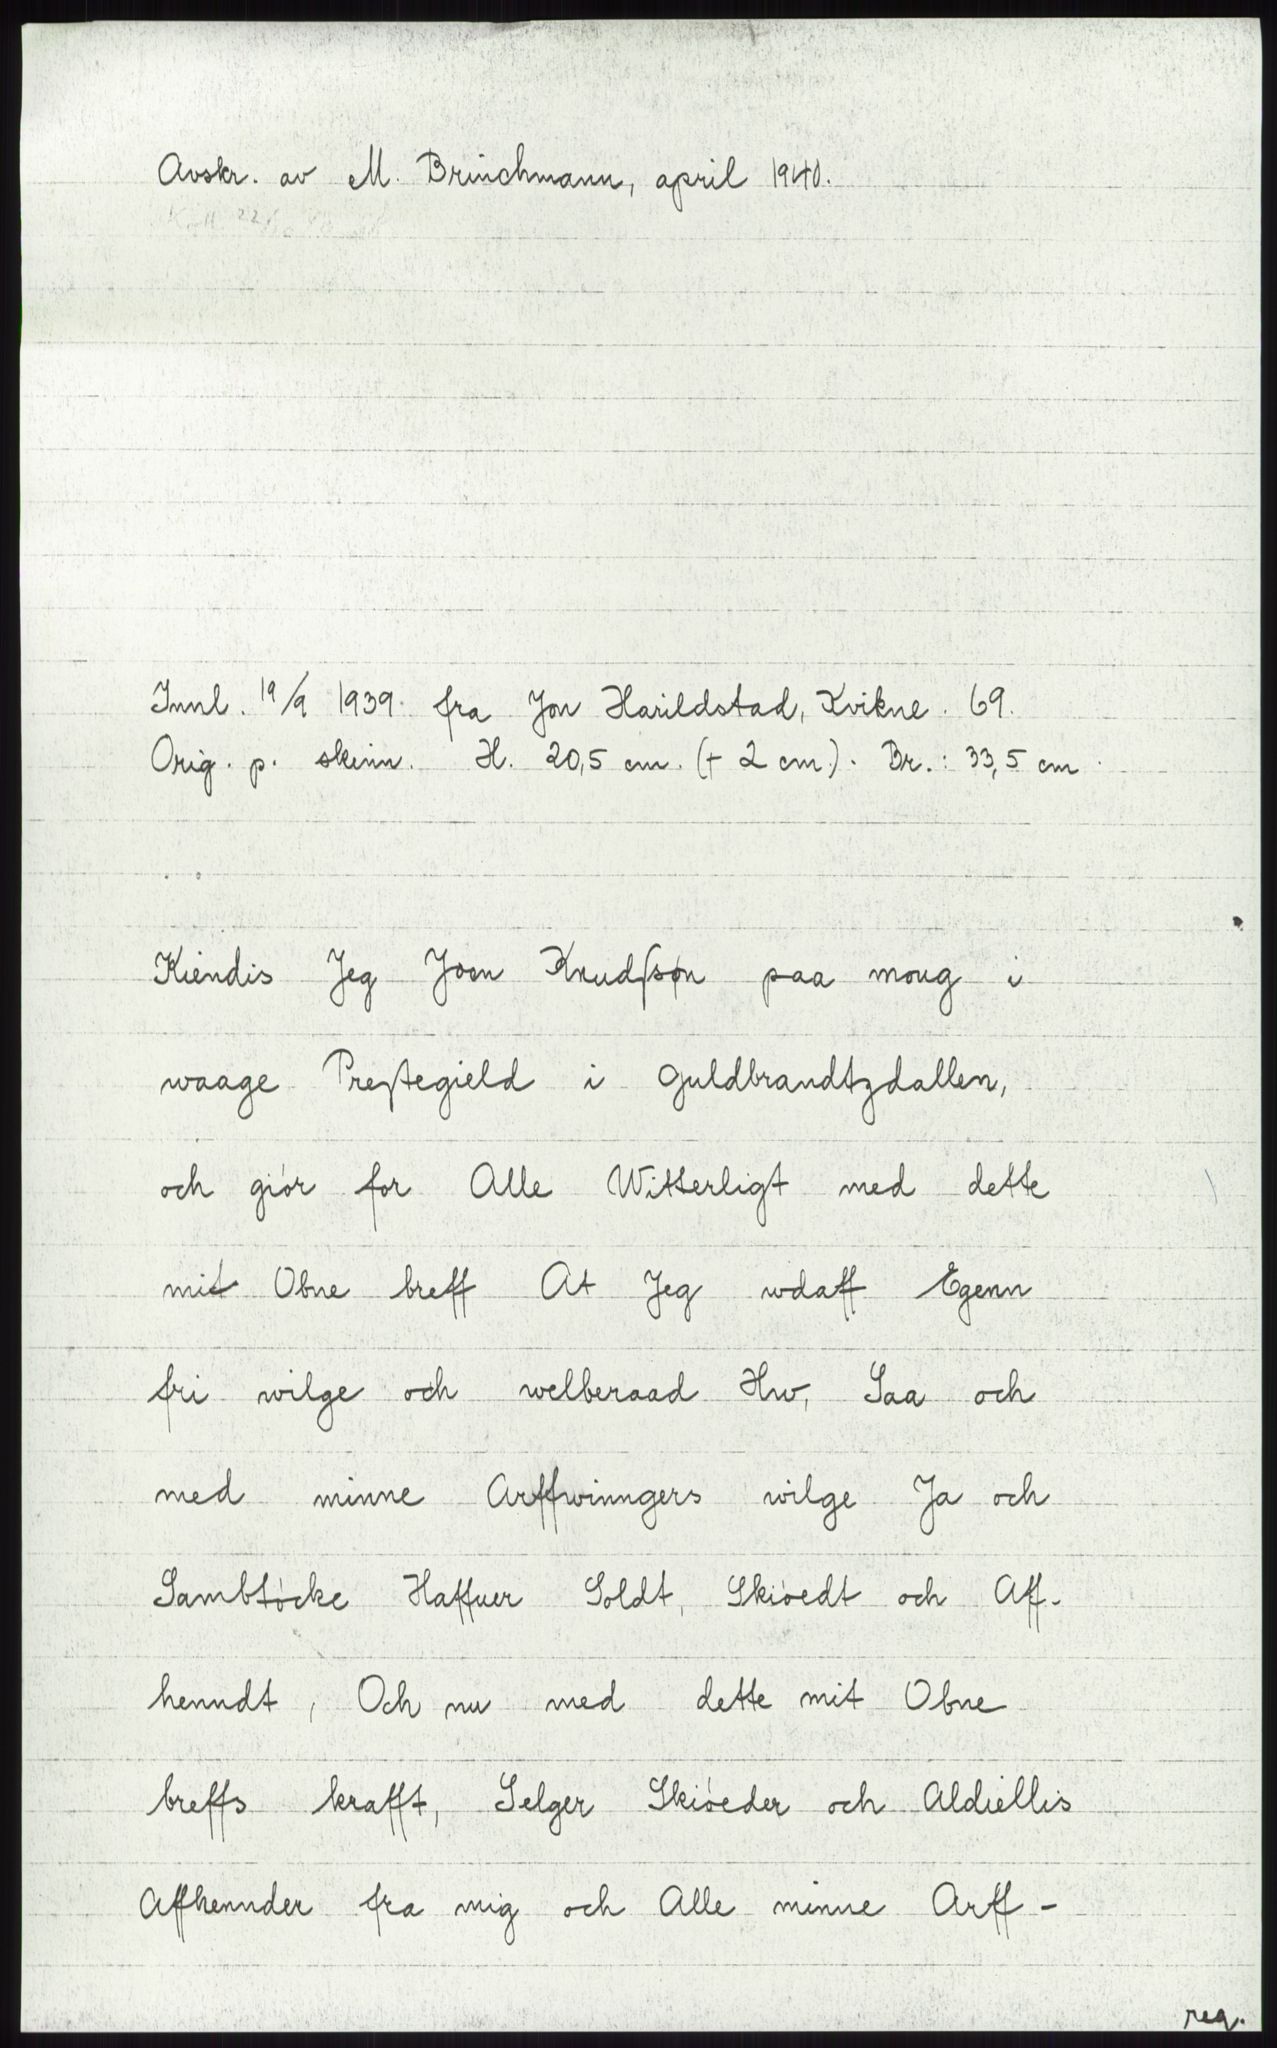 Avskr. av M. Brinchmann, april 1940.
Innl. 19/9 1939. fra Jon Harildstad, Kvikne. 69.
Orig. p. skinn. H. 20,5 cm. (+ 2 cm.). Br.: 33,5 cm.
Kiendis Jeg Joen Knudsøn paa moug i
waage Prestegield i guldbrandtzdallen,
och giør for Alle Witterligt med dette
mit Obne breff At Jeg wdaff Egenn
fri wilge och welberaad Hw, Saa och
med minne Arffwinngers wilge Ja och
Sambtøcke Haffuer Soldt, Skiøedt och Aff-
henndt, Och nu med dette mit Obne
breffs krafft, Selger Skiøeder och Aldiellis
Affhennder fra mig och Alle minne Arff-
reg.